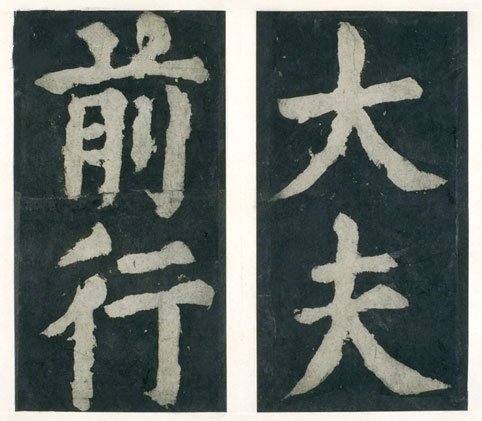 大夫
前行